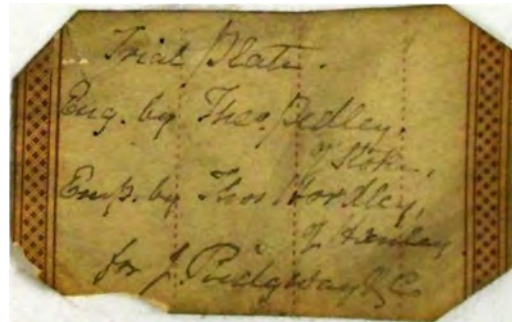 Trial Plate.
Eng. by Theo. Pedley,
of Stoke,
Emp. by Thos Hordley,
of Hanley
for J. Ridgway & C